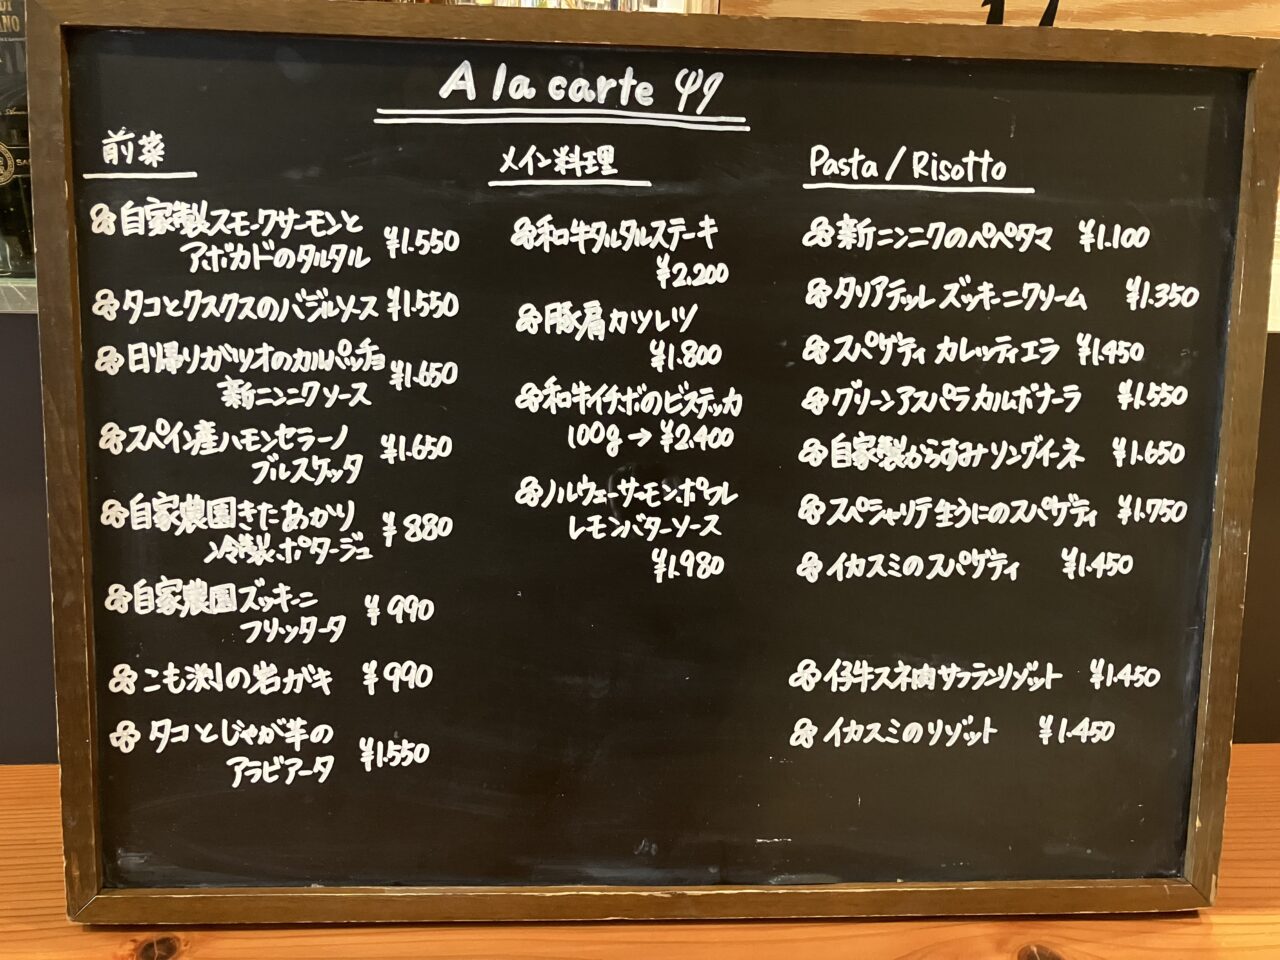 A la carte
前菜
自家製スモークサーモンと
アボカドのタルタル ¥1.550
タコとクスクスのバジルソース ¥1.550
日帰りガツオのカルパッチョ
新ニンニクソース ¥1.650
スペイン産ハモンセラーノ
ブルスケッタ ¥1.650
自家農園きたあかり
冷製ポタージュ ¥880
自家農園ズッキーニ
フリッタータ ¥990
こも渕の岩ガキ ¥990
タコとじゃが芋の
アラビアータ ¥1.550
メイン料理
和牛タルタルステーキ
¥2.200
豚肩カツレツ
¥1.800
和牛イチボのビステッカ
100g→¥2.400
ノルウェーサーモンポワレ
レモンバターソース
¥1.980
Pasta/Risotto
新ニンニクのペペタマ ¥1.100
タリアテッレ ズッキーニクリーム ¥1.350
スパゲティ カレッティエラ ¥1.450
グリーンアスパラカルボナーラ ¥1.550
自家製からすみリングイーネ ¥1.650
スペシャリテ生うにのスパゲティ ¥1.750
イカスミのスパゲティ ¥1.450
仔牛スネ肉サフランリゾット ¥1.450
イカスミのリゾット ¥1.450